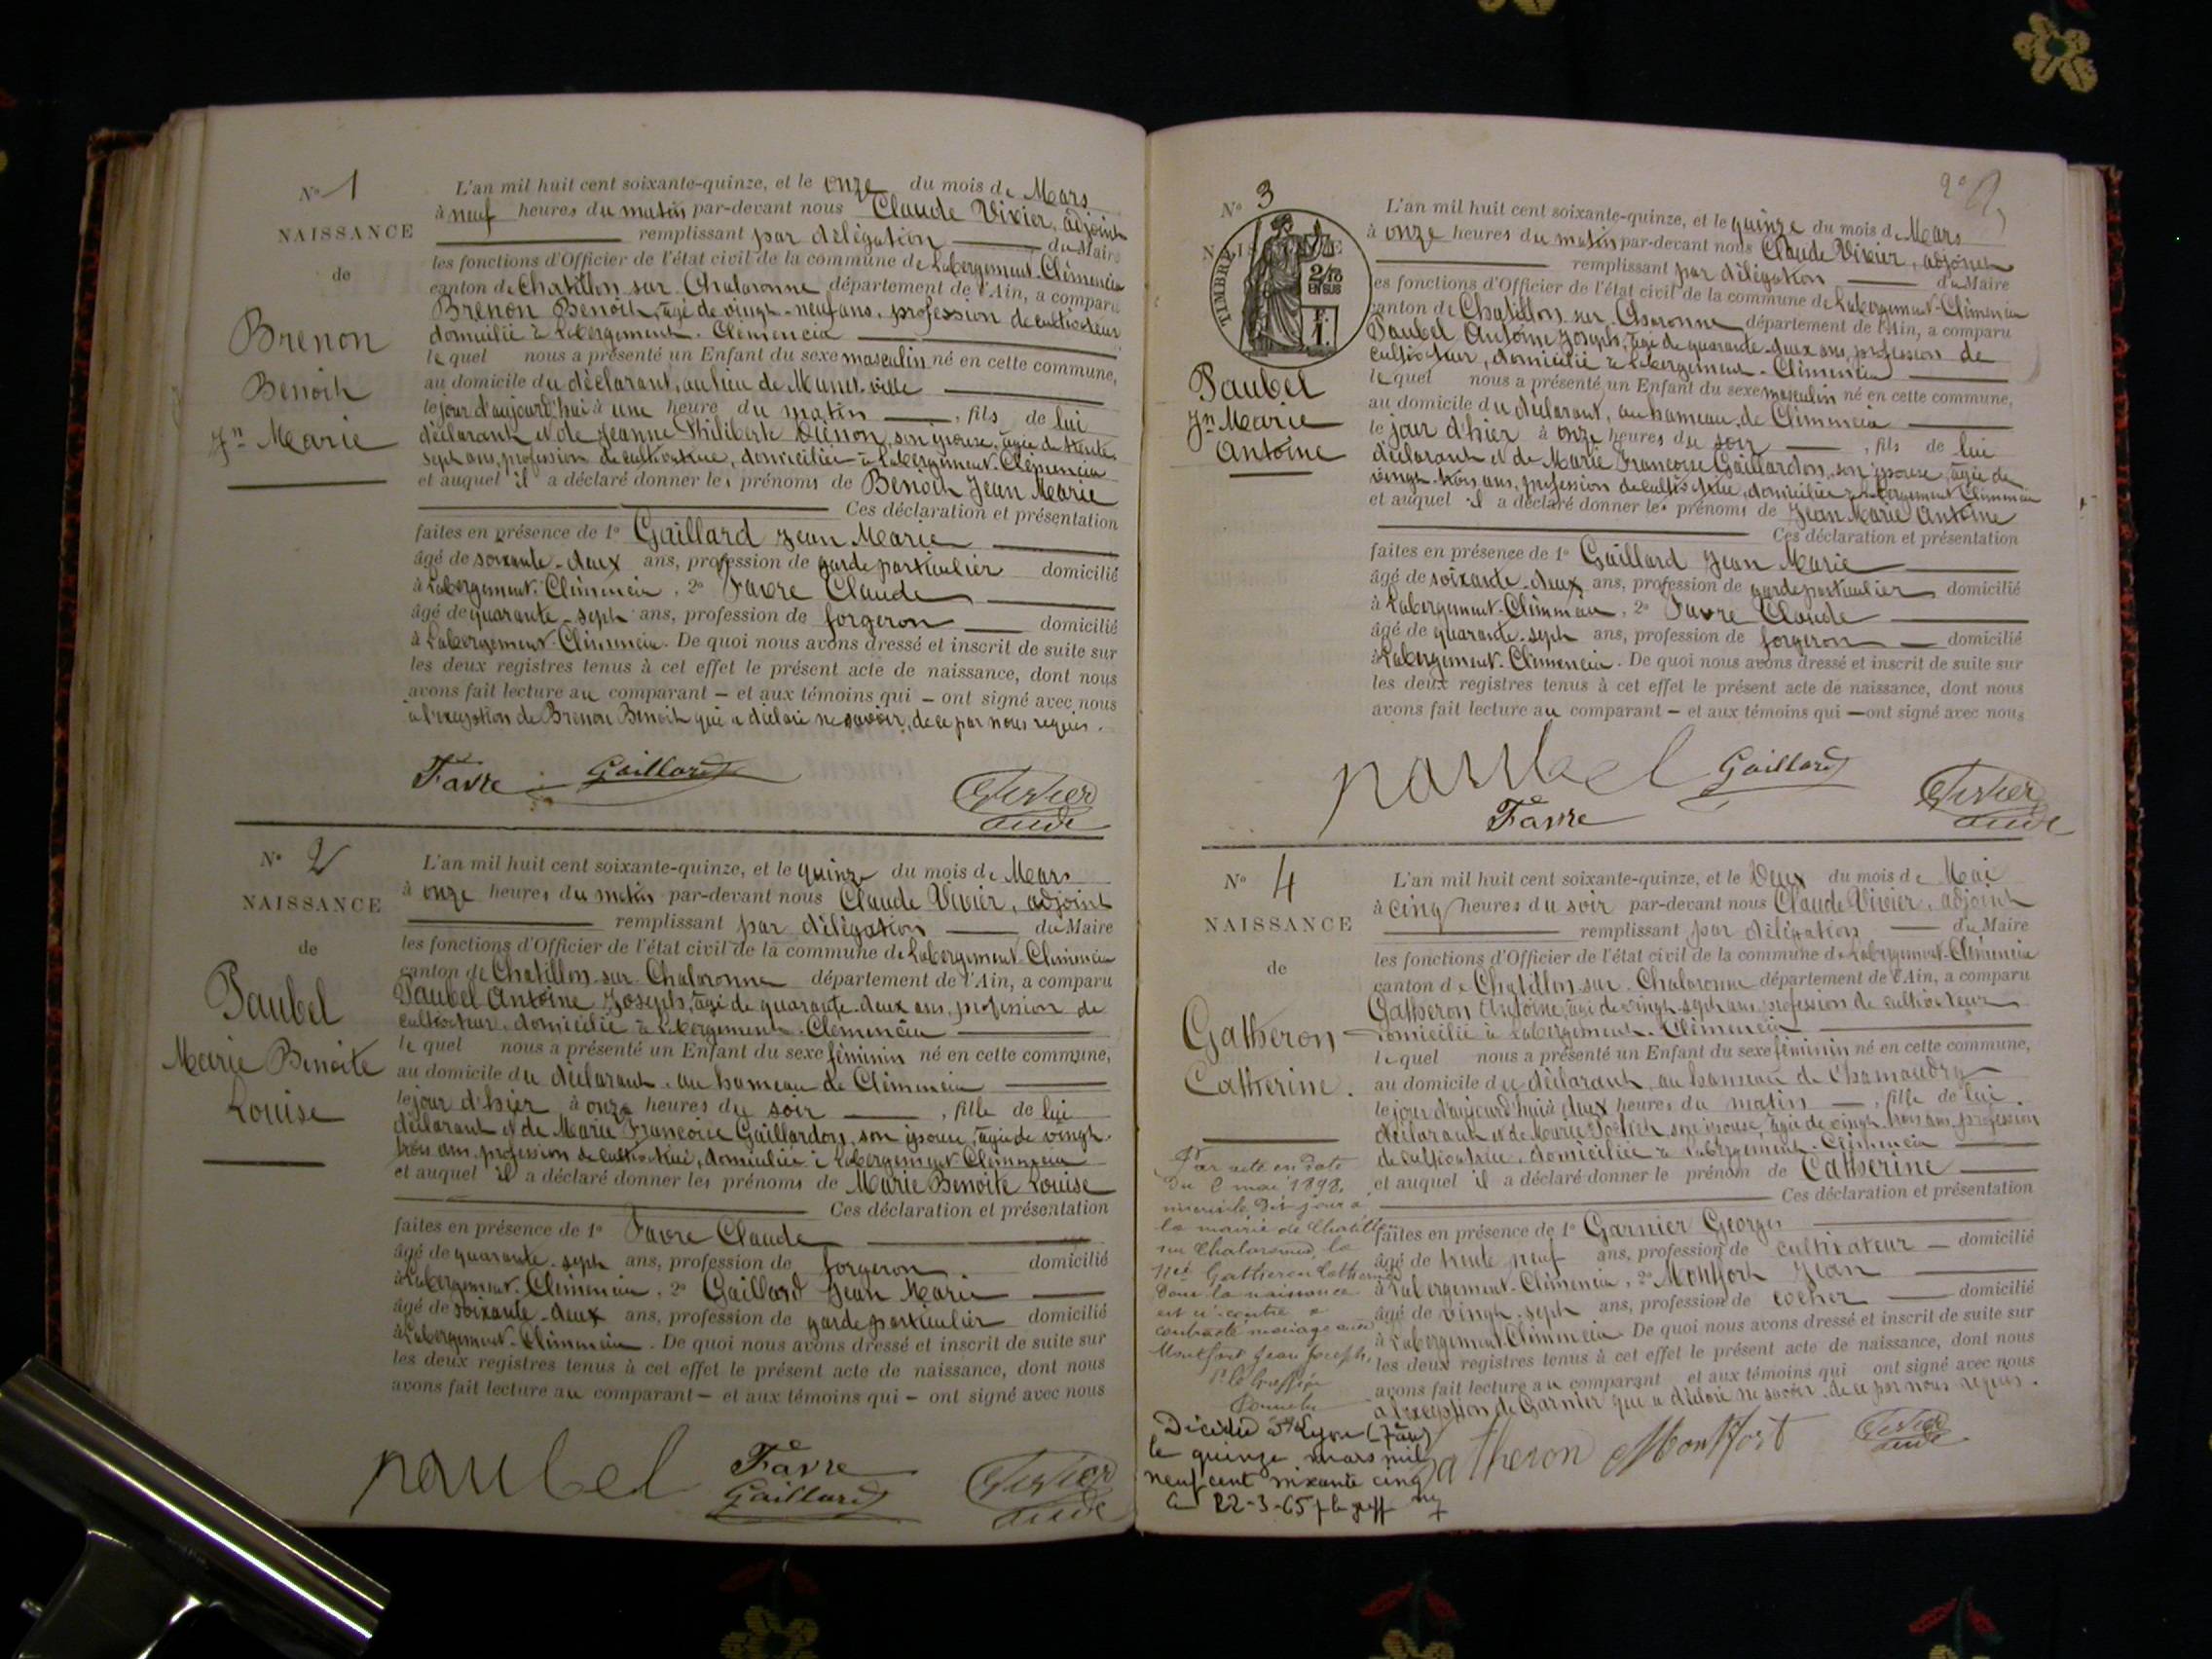 N° 1
NAISSANCE
de
Brenon
Benoit
Jn Marie
L'an mil huit cent soixante-quinze, et le onze du mois de Mars
à neuf heures du matin par-devant nous Claude Vivier, adjoint
remplissant par délégation du Maire
les fonctions d'Officier de l'état civil de la commune de Labergement-Clémencia
canton de Chatillon-sur-Chalaronne département de l'Ain, a comparu
Brenon Benoit, âgé de vingt-neuf ans, profession de cultivateur
domicilié à Labergement-Clémencia
lequel nous a présenté un Enfant du sexe masculin né en cette commune,
au domicile du déclarant, au lieu de
le jour d'aujourd'hui à une heure du matin, fils de lui
déclarant et de Jeanne Philiberte son épouse, âgée de trente
sept ans, profession de cultivatrice, domiciliée à Labergement-Clémencia
et auquel il a déclaré donner les prénoms de Benoit Jean Marie
Ces déclaration et présentation
faites en présence de 1° Gaillard Jean Marie
âgé de soixante-deux ans, profession de garde particulier domicilié
à Labergement-Clémencia, 2° Favre Claude
âgé de quarante-sept ans, profession de forgeron domicilié
à Labergement-Clémencia. De quoi nous avons dressé et inscrit de suite sur
les deux registres tenus à cet effet le présent acte de naissance, dont nous
avons fait lecture au comparant – et aux témoins qui – ont signé avec nous
à l'exception de Brenon Benoit qui a déclaré ne savoir, de ce par nous requis.
Favre Gaillard
N° 2
NAISSANCE
de
Paubel
Marie Benoite
Louise
L'an mil huit cent soixante-quinze, et le quinze du mois de Mars
à onze heures du matin par-devant nous Claude Vivier, adjoint
remplissant par délégation du Maire
les fonctions d'Officier de l'état civil de la commune de Labergement-Clémencia
canton de Chatillon-sur-Chalaronne département de l'Ain, a comparu
Paubel Antoine Joseph, âgé de quarante-deux ans, profession de
cultivateur, domicilié à Labergement-Clémencia
lequel nous a présenté un Enfant du sexe féminin né en cette commune,
au domicile du déclarant, au hameau de Clémencia
le jour d'hier à onze heures du soir, fille de lui
déclarant et de Marie Françoise Gaillardon, son épouse, âgée de vingt-
trois ans, profession de cultivatrice, domiciliée à Labergement-Clémencia
et auquel il a déclaré donner les prénoms de Marie Benoite Louise
Ces déclaration et présentation
faites en présence de 1° Favre Claude
âgé de quarante-sept ans, profession de forgeron domicilié
à Labergement-Clémencia, 2° Gaillard Jean Marie
âgé de soixante-deux ans, profession de garde particulier domicilié
à Labergement-Clémencia. De quoi nous avons dressé et inscrit de suite sur
les deux registres tenus à cet effet le présent acte de naissance, dont nous
avons fait lecture au comparant – et aux témoins qui – ont signé avec nous
paubel Favre
Gaillard
N° 3
TIMBRE
2/10 EN SUS
F. 1.
Paubel
Jn Marie
Antoine
L'an mil huit cent soixante-quinze, et le quinze du mois de Mars
à onze heures du matin par-devant nous Claude Vivier, adjoint
remplissant par délégation du Maire
les fonctions d'Officier de l'état civil de la commune de Labergement-Clémencia
canton de Chatillon-sur-Charonne département de l'Ain, a comparu
Paubel Antoine Joseph, âgé de quarante-deux ans, profession de
cultivateur, domicilié à Labergement-Clémencia
lequel nous a présenté un Enfant du sexe masculin né en cette commune,
au domicile du déclarant, au hameau de Clémencia
le jour d'hier à onze heures du soir, fils de lui
déclarant et de Marie Françoise Gaillardon, son épouse, âgée de
vingt-trois ans, profession de cultivatrice, domiciliée à Labergement-Clémencia
et auquel il a déclaré donner les prénoms de Jean Marie Antoine
Ces déclaration et présentation
faites en présence de 1° Gaillard Jean Marie
âgé de soixante-deux ans, profession de garde particulier domicilié
à Labergement-Clémencia, 2° Favre Claude
âgé de quarante-sept ans, profession de forgeron domicilié
à Labergement-Clémencia. De quoi nous avons dressé et inscrit de suite sur
les deux registres tenus à cet effet le présent acte de naissance, dont nous
avons fait lecture au comparant – et aux témoins qui – ont signé avec nous
paubel Gaillard
Favre
N° 4
NAISSANCE
de
Gatheron
Catherine.
Par acte en date
du 2 mai 1898,
inscrit le dit jour à
la mairie de Chatillon
sur Chalaronne, la
née Gatheron Catherine
dont la naissance
est ci-contre a
contracté mariage avec
Montfort Jean Joseph.
Décédée à Lyon (7ème)
le quinze mars mil
neuf cent soixante cinq
Le 22-3-65
L'an mil huit cent soixante-quinze, et le Deux du mois de Mai
à cinq heures du soir par-devant nous Claude Vivier, adjoint
remplissant par délégation du Maire
les fonctions d'Officier de l'état civil de la commune de Labergement-Clémencia
canton de Chatillon-sur-Chalaronne département de l'Ain, a comparu
Gatheron Antoine, âgé de vingt-sept ans, profession de cultivateur
domicilié à Labergement-Clémencia
lequel nous a présenté un Enfant du sexe féminin né en cette commune,
au domicile du déclarant, au hameau de
le jour d'aujourd'hui à deux heures du matin, fille de lui.
déclarant et de Marie son épouse, âgée de vingt-trois ans, profession
de cultivatrice, domiciliée à Labergement-Clémencia
et auquel il a déclaré donner le prénom de Catherine
Ces déclaration et présentation
faites en présence de 1° Garnier Georges
âgé de trente neuf ans, profession de cultivateur domicilié
à Labergement-Clémencia, 2° Montfort Jean
âgé de vingt-sept ans, profession de cocher domicilié
à Labergement-Clémencia. De quoi nous avons dressé et inscrit de suite sur
les deux registres tenus à cet effet le présent acte de naissance, dont nous
avons fait lecture au comparant et aux témoins qui ont signé avec nous
à l'exception de Garnier qui a déclaré ne savoir, de ce par nous requis.
gatheron Montfort